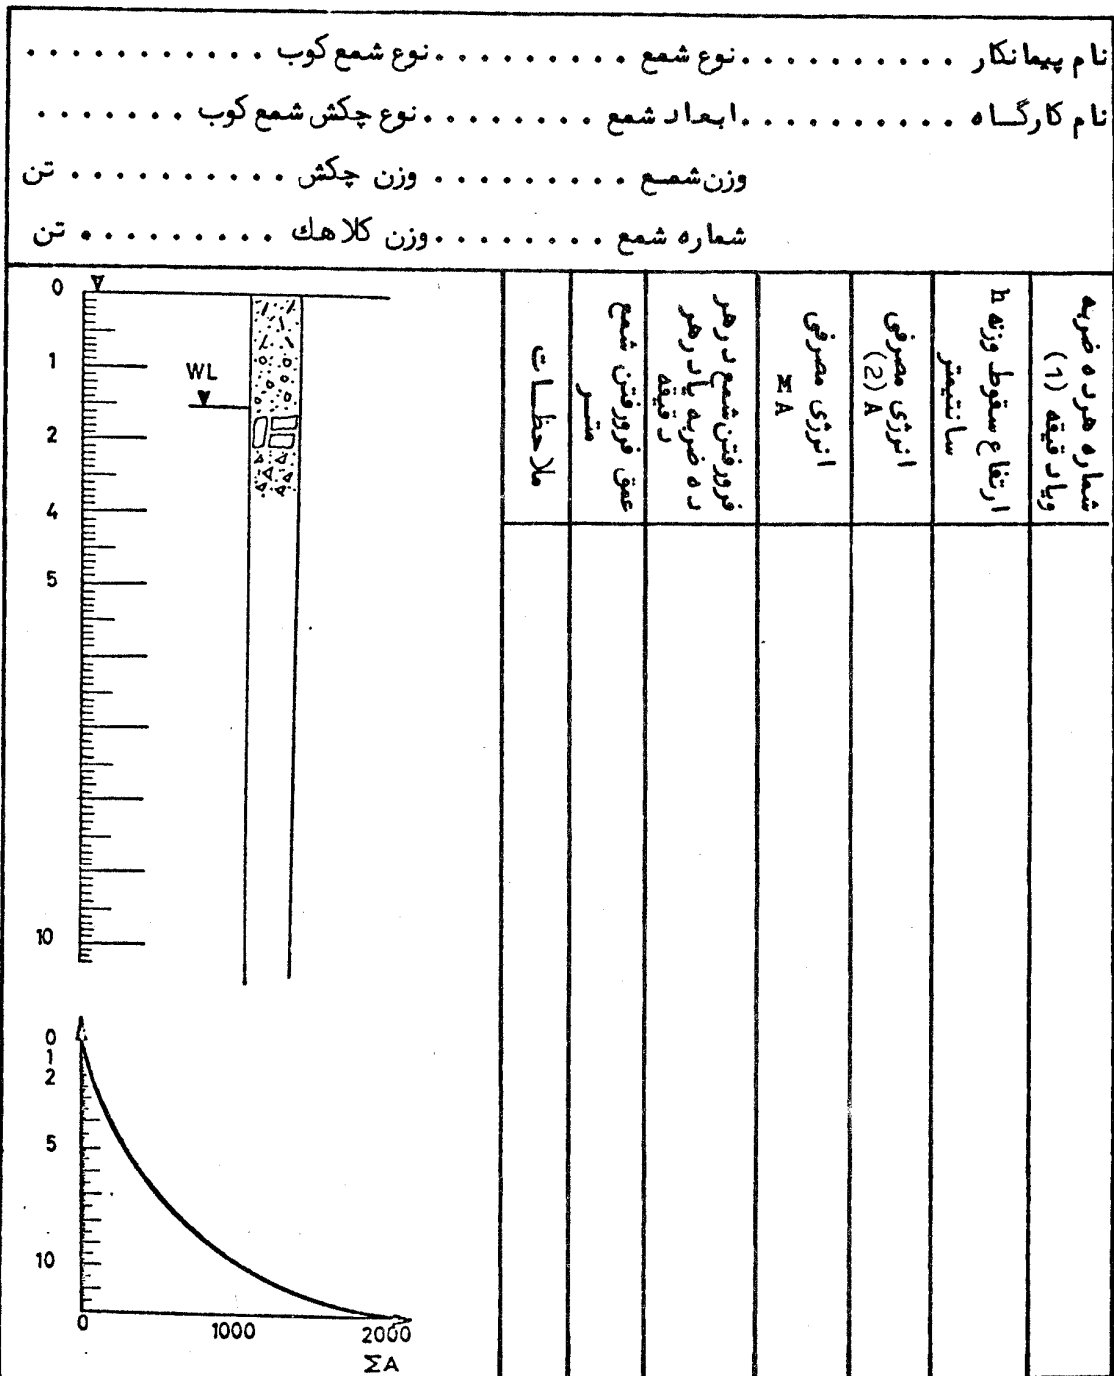 نام پیمانکار . . . . . . . . . . . نوع شمع . . . . . . . . . . نوع شمع کوب . . . . . . . . . . . .
نام کارگاه . . . . . . . . . . . ابعاد شمع . . . . . . . . نوع چکش شمع کوب . . . . . . .
وزن شمع . . . . . . . . . وزن چکش . . . . . . . . . . تن
شماره شمع . . . . . . . . وزن کلاهك . . . . . . . . . تن
شماره هر ده ضربه
ویا دقیقه (1)
ارتفاع سقوط وزنه h
سانتیمتر
انرژی مصرفی
A (2)
انرژی مصرفی
ΣA
فرورفتن شمع در هر
ده ضربه یا در هر
دقیقه
عمق فرورفتن شمع
متر
ملاحظات
0
1
WL
2
4
5
10
0
1
2
5
10
0 1000 2000
ΣA